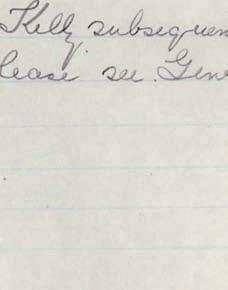 Kelly subsequen
lease see Gene